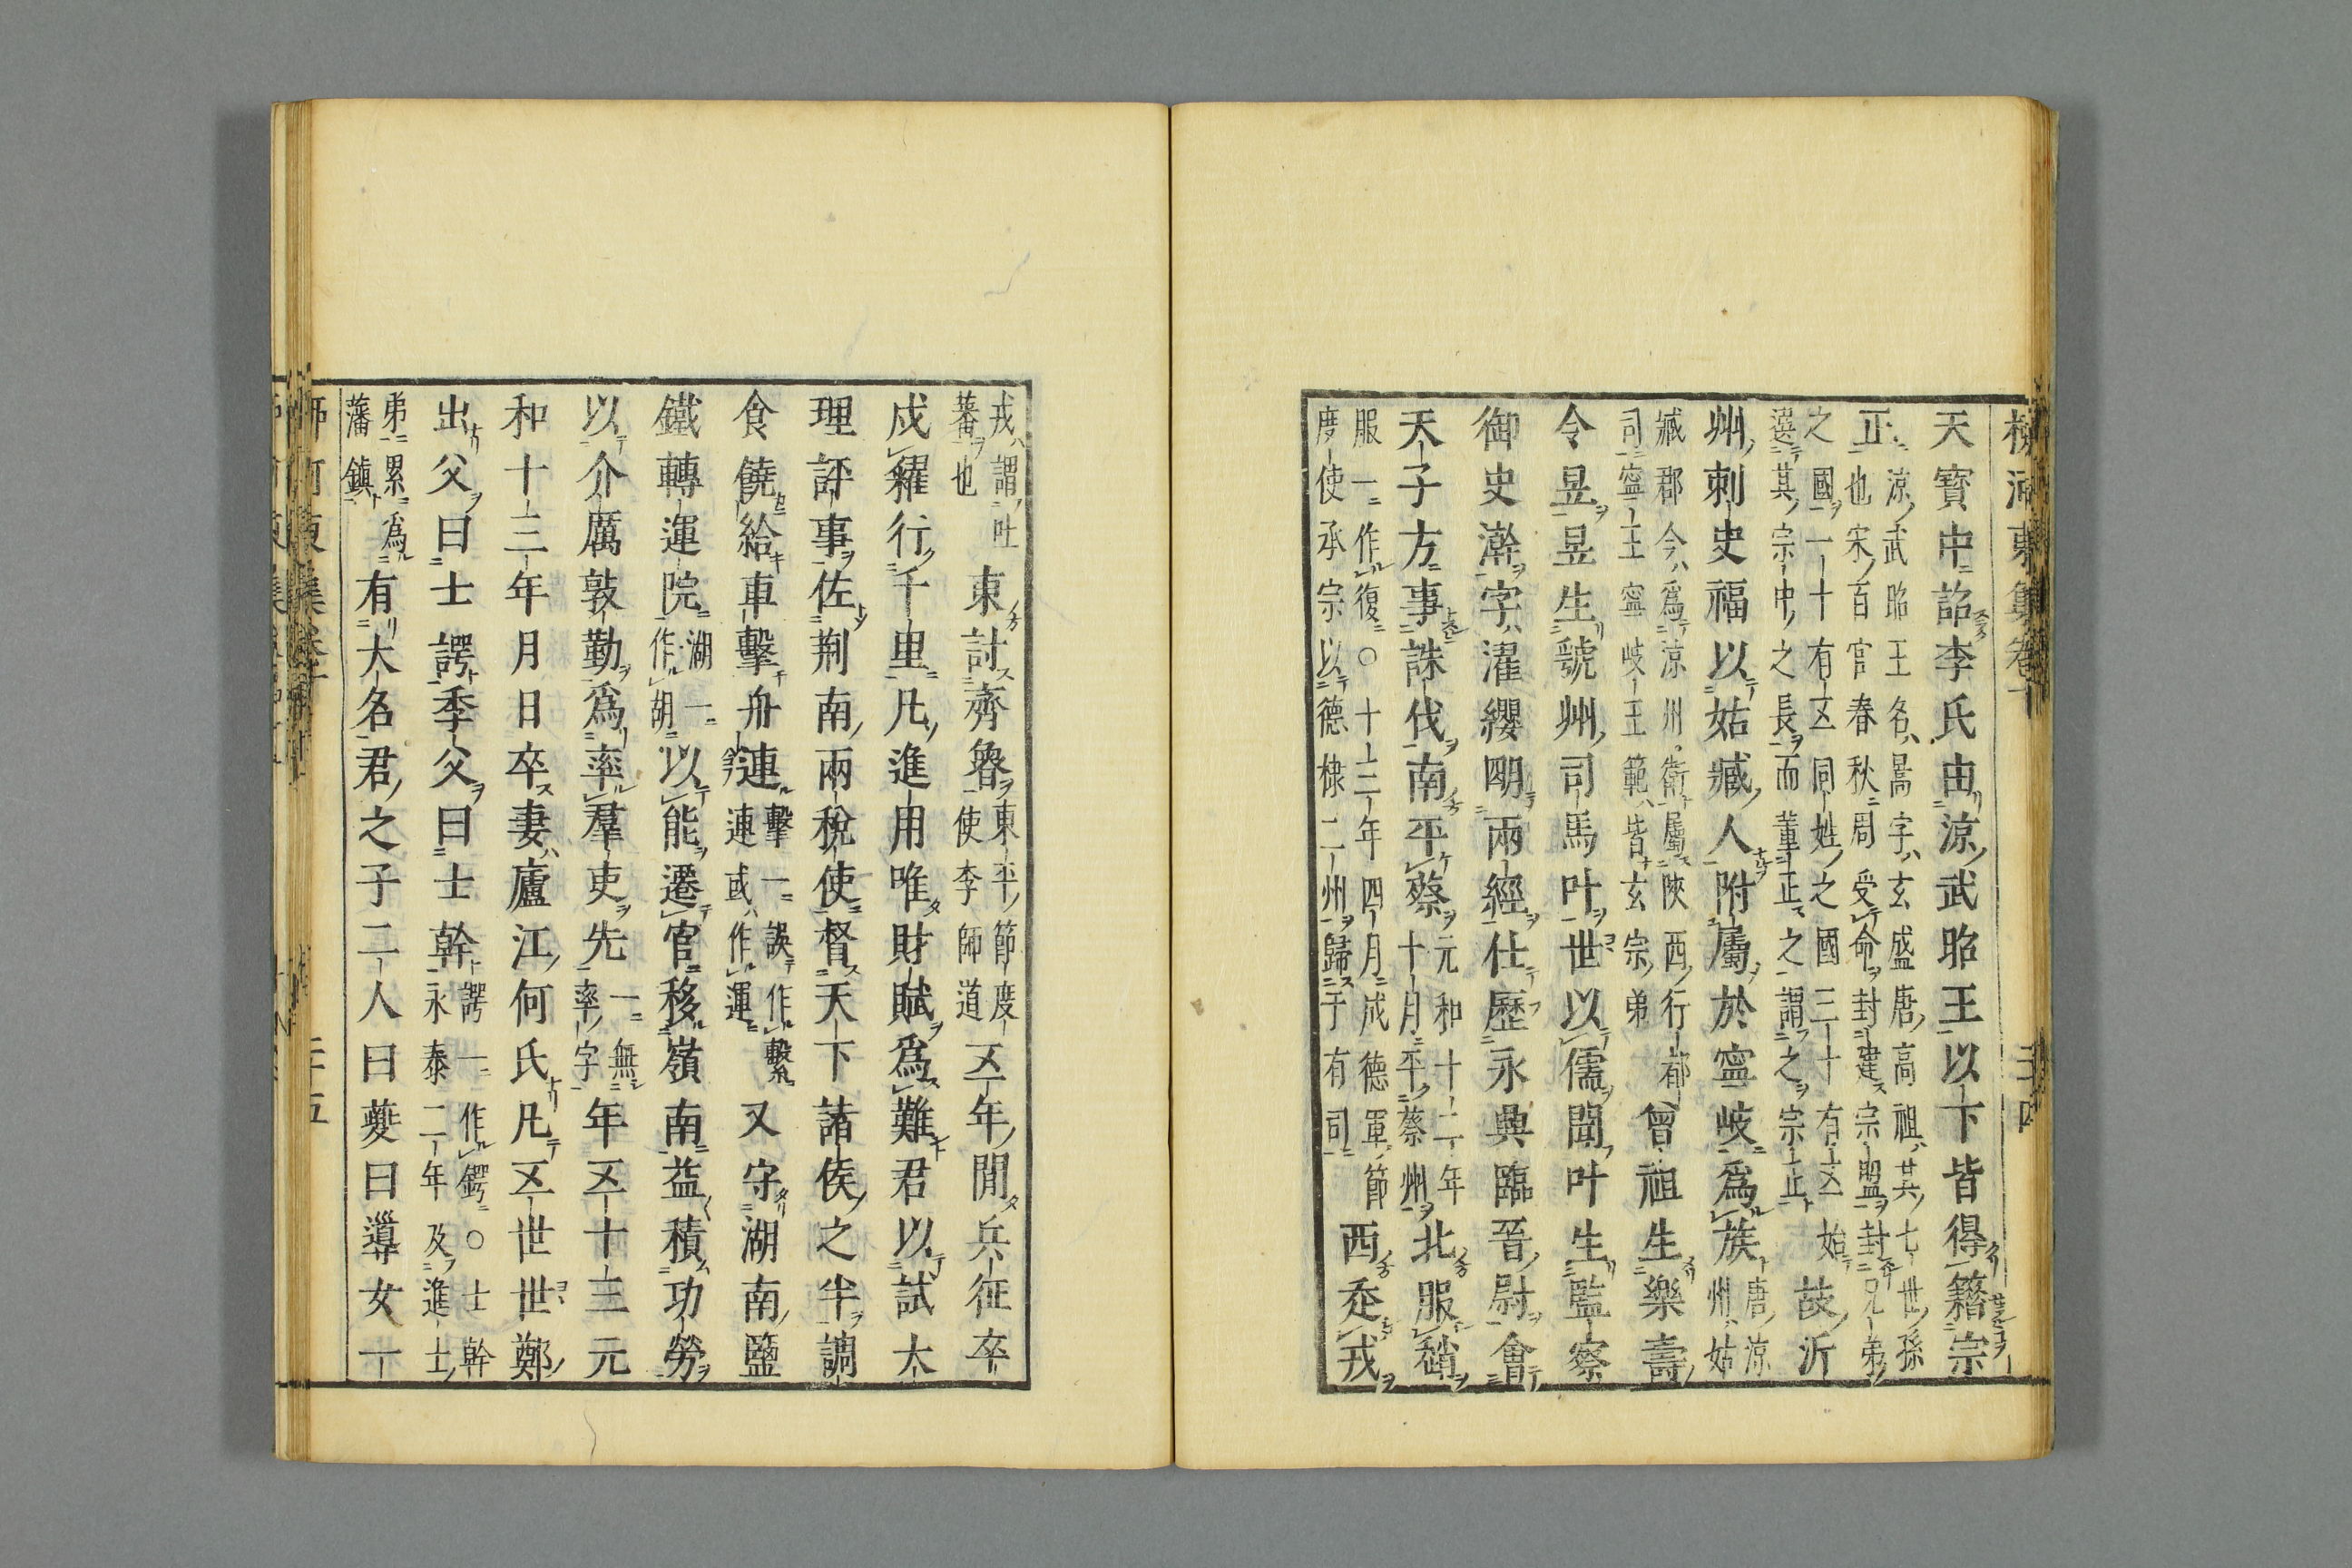 天寶中詔李氏由涼武昭王以下皆得籍宗
正
涼武昭王名暠字玄盛唐高祖其七世孫
也宋百官春秋周受命封建宗盟封兄弟
之國一十有五同姓之國三十有五始
選其宗中之長而董正之謂之宗正
故沂
州刺史福以姑臧人附屬於寧岐爲族
唐涼
州姑
臧郡今爲涼州衛屬陝西行都
司寧王寧岐王範皆玄宗弟
曾祖生樂壽
令昱昱生虢州司馬叶世以儒聞叶生監察
御史澣字濯纓明兩經仕歷永興臨晉尉會
天子方事誅伐南平蔡
元和十二年
十月平蔡州
北服趙
服一作復○十三年四月成德軍節
度使承宗以德棣二州歸于有司
西走戎
戎謂吐
蕃也
東討齊魯
東平節度
使李師道
五年閒兵征卒
戍糴行千里凡進用唯財賦爲難君以試大
理評事佐荆南兩稅使督天下諸侯之半調
食饒給車擊舟連
擊一誤作繫
連或作運
又守湖南鹽
鐵轉運院
湖一
作胡
以能遷官移嶺南益積功勞
以介厲敦勤爲率羣吏先
一無
率字
年五十三元
和十三年月日卒妻廬江何氏凡五世世鄭
出父曰士諤季父曰士幹
諤一作鍔○士幹
永泰二年及進士
弟累爲
藩鎮
有大名君之子二人曰夔曰導女一